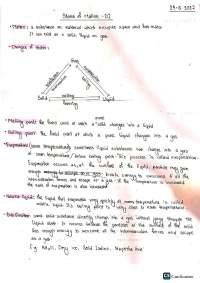 29-6-2022
States of Matter - II
• Matter: a substance or material which occupies space and has mass.
It can exist as a solid, liquid or gas.
• Changes of States:
Gas
Solid
Liquid
melting
freezing
• Melting point: the fixed point at which a solid changes into a liquid
• Boiling point: the fixed point at which a pure liquid changes into a gas
• Evaporation: sometimes liquid substances can change into a gas
at room temperature / before boiling point. This process is called evaporation.
Evaporation occurs at the surface of the liquid, particles may gain
enough energy to overcome all the
intermolecular forces and escape as a gas. If the temperature is increased
the rate of evaporation is also increased.
• Volatile liquid: the liquid that evaporates very quickly at room temperature is called
volatile liquid. Its boiling point is very close to room temperature.
• Sublimation: some solid substance directly change into a gas without going through the
liquid state. It occurs because the particles at the surface of the solid
has enough energy to overcome all the intermolecular forces and escape
as a gas.
E.g. Dry Ice, Solid Iodine, Naphthalene
CS CamScanner